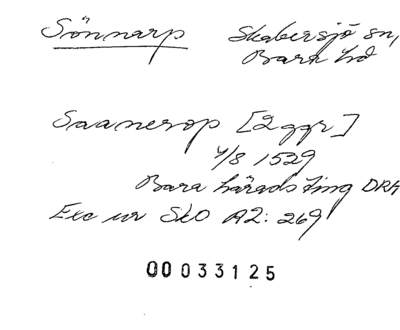 Sönnarp Skabersjö sn,
Bara hd
Saanerop [2 ggr]
4/8 1529
Bara härads ting DRA
Exc ur SkO A2: 269
00033125